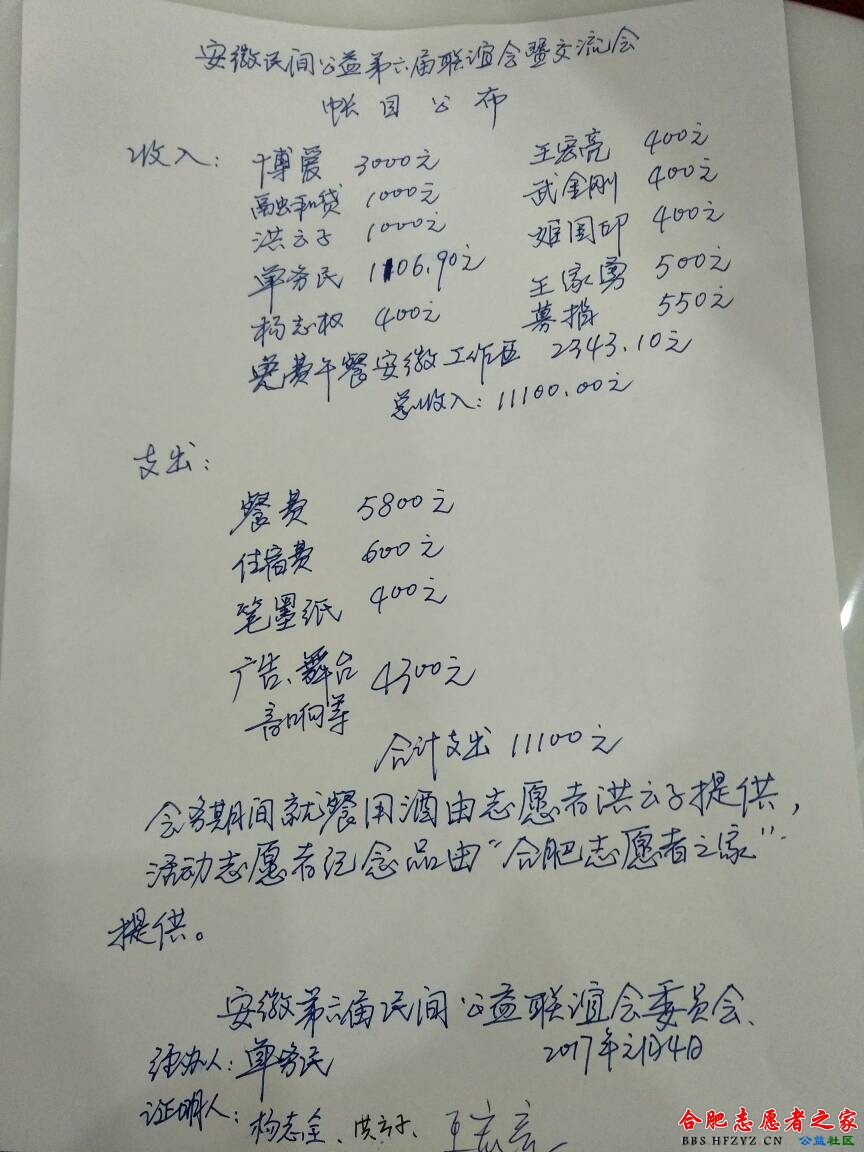 安徽民间公益第六届联谊会暨交流会
帐目公布
收入: 博爱 3000元 王宏亮 400元
融和贷 1000元 武金刚 400元
洪云子 1000元 姬国印 400元
单务民 1106.90元 王家勇 500元
杨志权 400元 募捐 550元
免费午餐安徽工作区 2343.10元
总收入: 11100.00元
支出:
餐费 5800元
住宿费 600元
笔墨纸 400元
广告、舞台 4300元
音响等
合计支出 11100元
会务期间就餐用酒由志愿者洪云子提供,
活动志愿者纪念品由“合肥志愿者之家”
提供。
安徽第六届民间公益联谊会委员会、
经办人: 单务民 2017年元月4日
证明人: 杨志全、洪云子、
合肥志愿者之家
BBS.HFZYZ.CN 公益社区